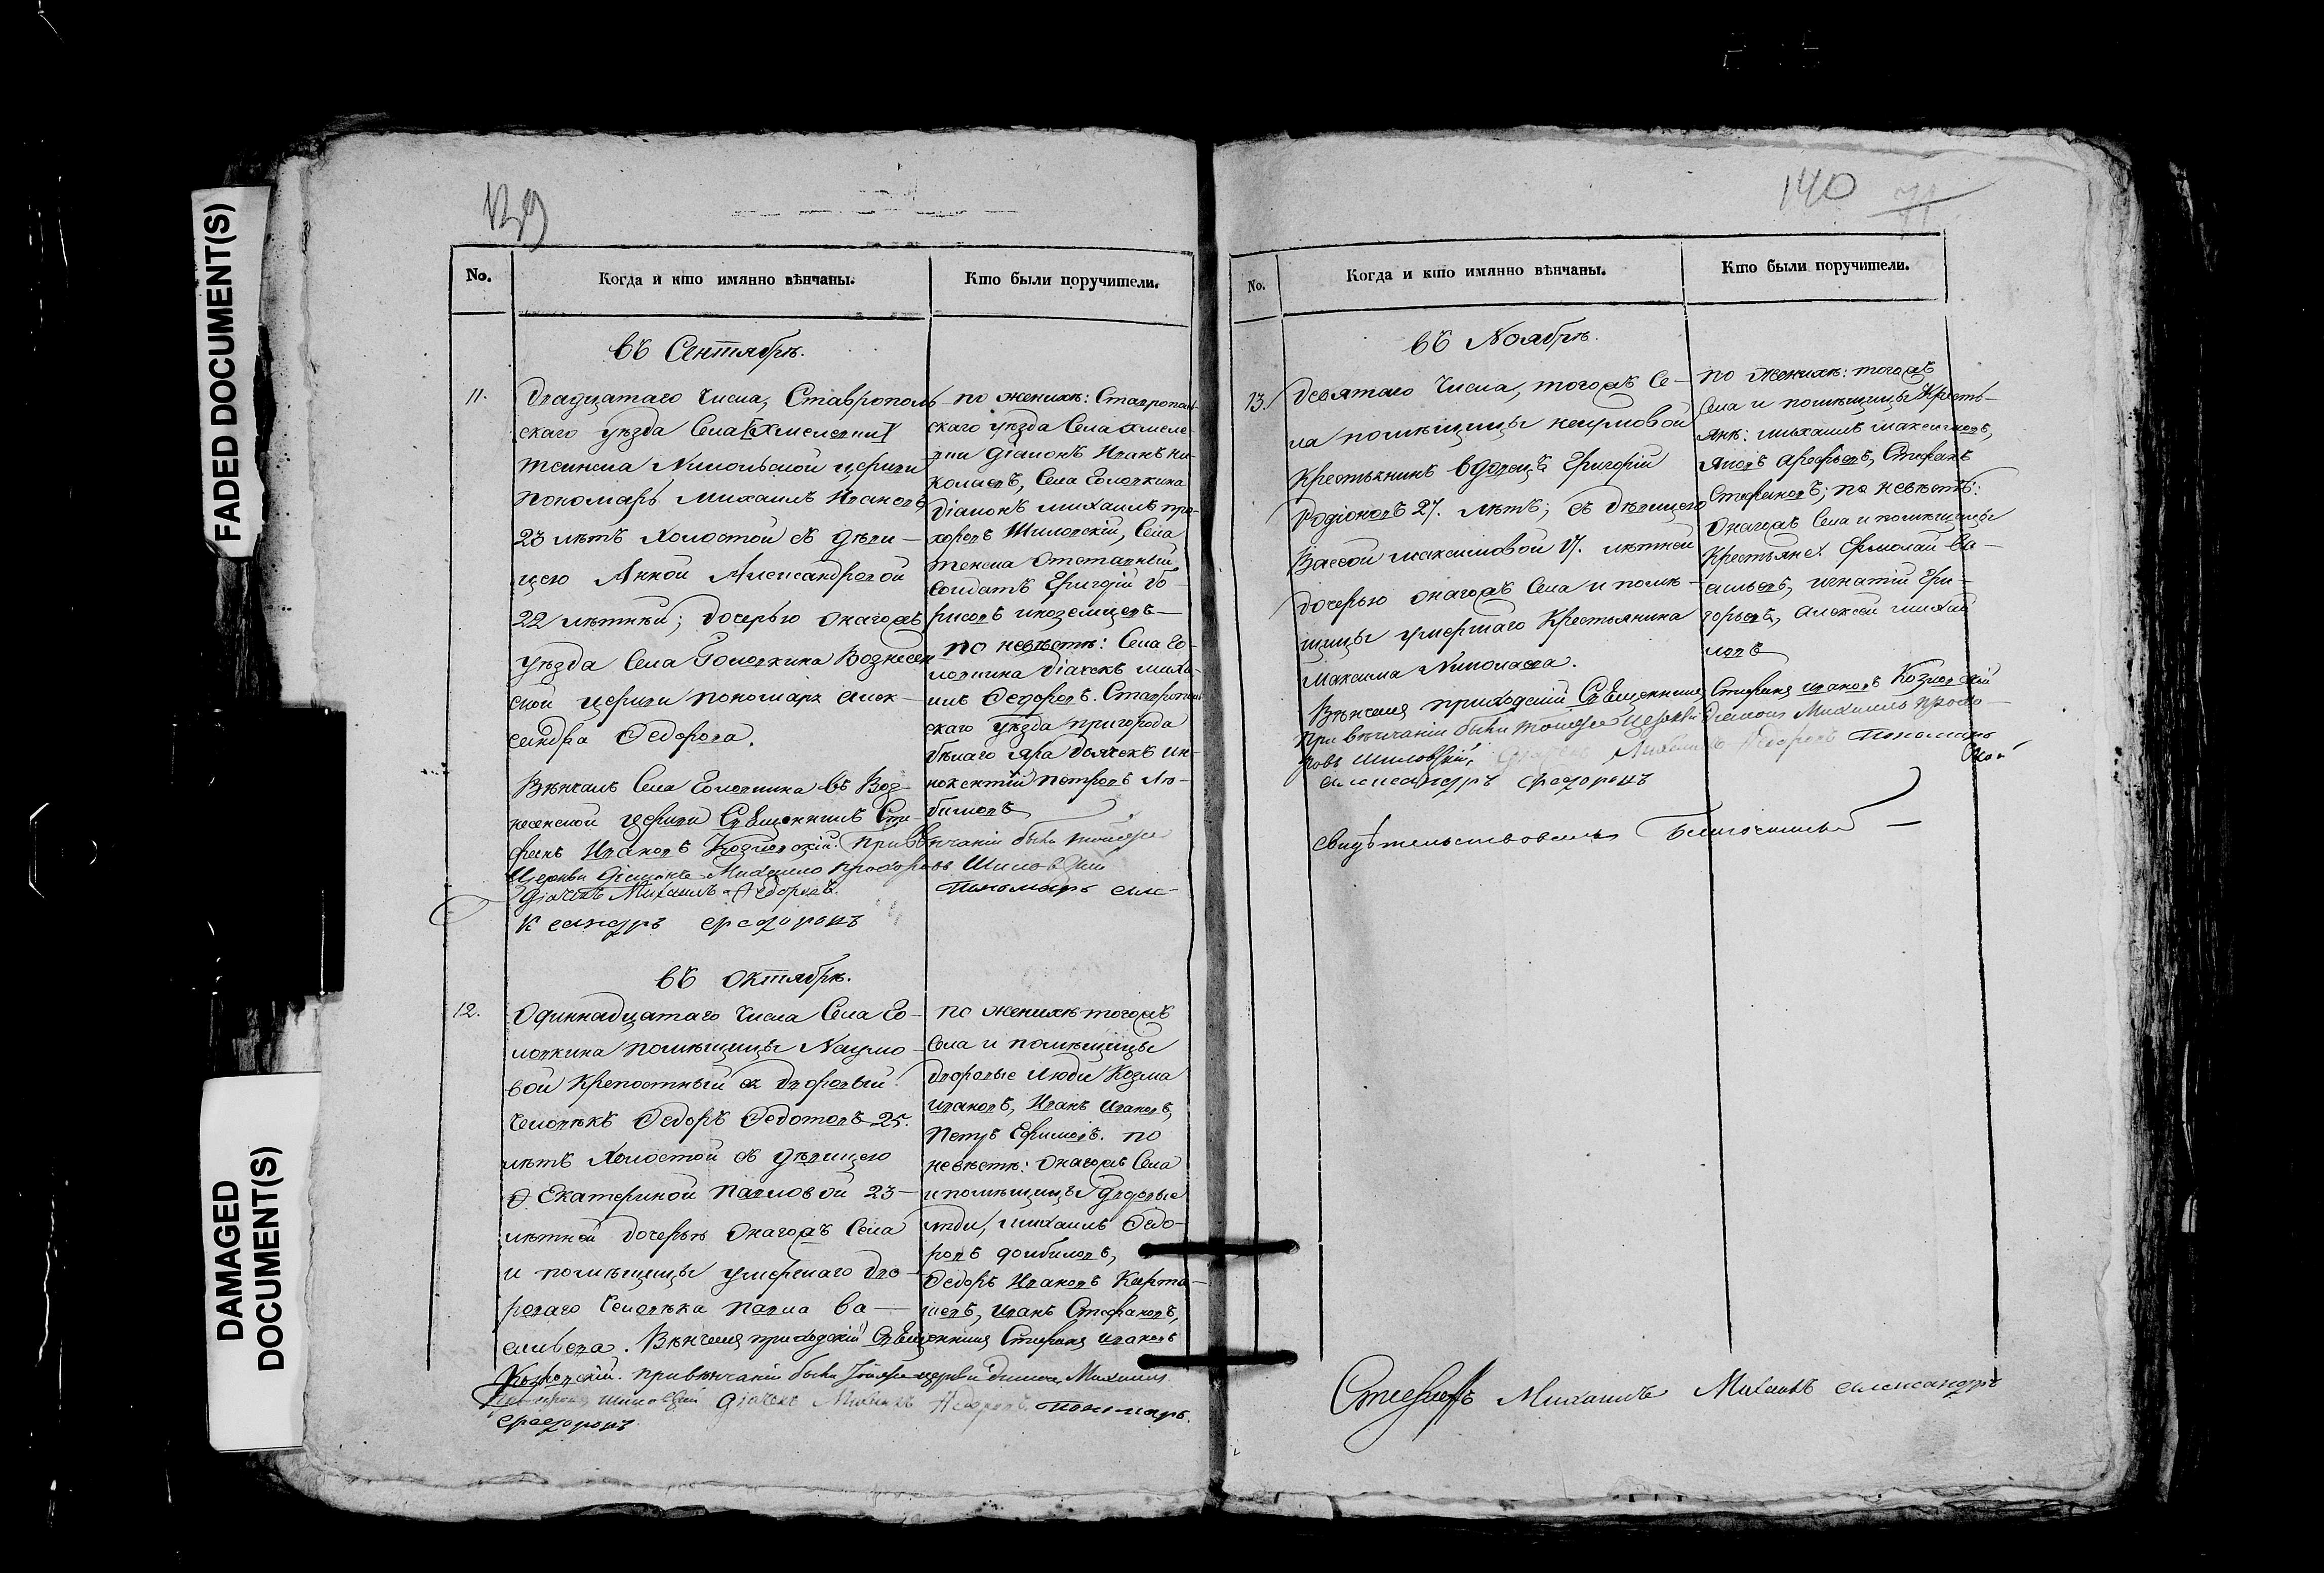 FADED DOCUMENT(S)
DAMAGED
DOCUMENT(S)
139
No.
Когда и кто имянно вѣнчаны.
Кто были поручители.
въ Сентябрѣ.
11.
Двадцатаго числа, Ставрополь-
скаго уѣзда Села Хмелевки
Никольской церкви
Пономарь Михаилъ Ивановъ
23 лѣтъ холостой съ дѣви-
цею Анной Александровой
22 лѣтней; дочерью онагожъ
уѣзда Села Головкина Вознесен-
ской церкви пономаря Алек-
сандра Федорова.
Вѣнчалъ Села Головкина въ Воз-
несенской церкви Священникъ Сте-
фанъ Ивановъ Козловскій. При вѣнчаніи были тойже
Церкви Діаконъ Михаило Прохоровъ Шиловскій
Дьячекъ Михаилъ Федоровъ. Пономарь Але-
ксандръ Федоровъ
по женихѣ: Ставрополь-
скаго уѣзда Села Хмеле-
вки діаконъ Иванъ Ни-
колаевъ, Села Головкина
Діаконъ Михаилъ Про-
хоровъ Шиловскій, Села
отставный
Солдатъ Григорій Бо-
рисовъ иноземцевъ
по невѣстѣ: Села Го-
ловкина дьячекъ Миха-
илъ Федоровъ. Ставрополь-
скаго уѣзда пригорода
Бѣлаго Яра дьячекъ Ин-
нокентій Петровъ Лю-
бимовъ
въ Октябрѣ.
12.
Одиннадцатаго числа Села Го-
ловкина помѣщицы Наумо-
вой крепостный дворовый
человѣкъ Федоръ Федотовъ 25.
лѣтъ холостой съ дѣвицею
Екатериной Павловой 23-
лѣтней дочерью онагожъ Села
и помѣщицы умершаго дво-
роваго человѣка Павла Ва-
сильева. Вѣнчалъ приходскій Священникъ Стефанъ Ивановъ
Козловскій. При вѣнчаніи были тойже церкви діаконъ Михаилъ
Прохоровъ Шиловскій Дьячекъ Михаилъ Федоровъ. Пономарь.
Федоровъ
по женихѣ тогожъ
Села и помѣщицы
дворовые люди Козма
Ивановъ, Иванъ Ивановъ,
Петръ Ефимовъ. по
невѣстѣ: онагожъ Села
и помѣщицы дворовые
люди, Михаилъ Федо-
ровъ
Федоръ Ивановъ Карта-
шевъ, Иванъ Стефановъ,
140
71
No.
Когда и кто имянно вѣнчаны.
Кто были поручители.
въ Ноябрѣ.
13.
Девятаго числа, тогожъ Се-
ла помѣщицы Неумовой
Крестьянинъ вдовецъ Григорій
Родіоновъ 27. лѣтъ; съ дѣвицею
Вассой Максимовой 17. лѣтней
дочерью онагожъ Села и помѣ-
щицы умершаго Крестьянина
Максима Николаева.
Вѣнчалъ приходскій Священникъ Стефанъ Ивановъ Козловскій
При вѣнчаніи были тойже Церкви Діаконъ Михаилъ Прохо-
ровъ Шиловскій, Дьячекъ Михаилъ Федоровъ Пономарь
Александръ Федоровъ
Свидѣтельствовалъ Благочинный
по женихѣ: тогожъ
Села и помѣщицы Кресть-
яне: Михаилъ Максимовъ,
Яковъ Арефьевъ, Стефанъ
Стефановъ; по невѣстѣ:
онагожъ Села и помѣщицы
Крестьяне Ермолай Ва-
сильевъ, Игнатій Гри-
горьевъ, Алексей Михай-
ловъ
Стефанъ Михаилъ Михаилъ Александръ